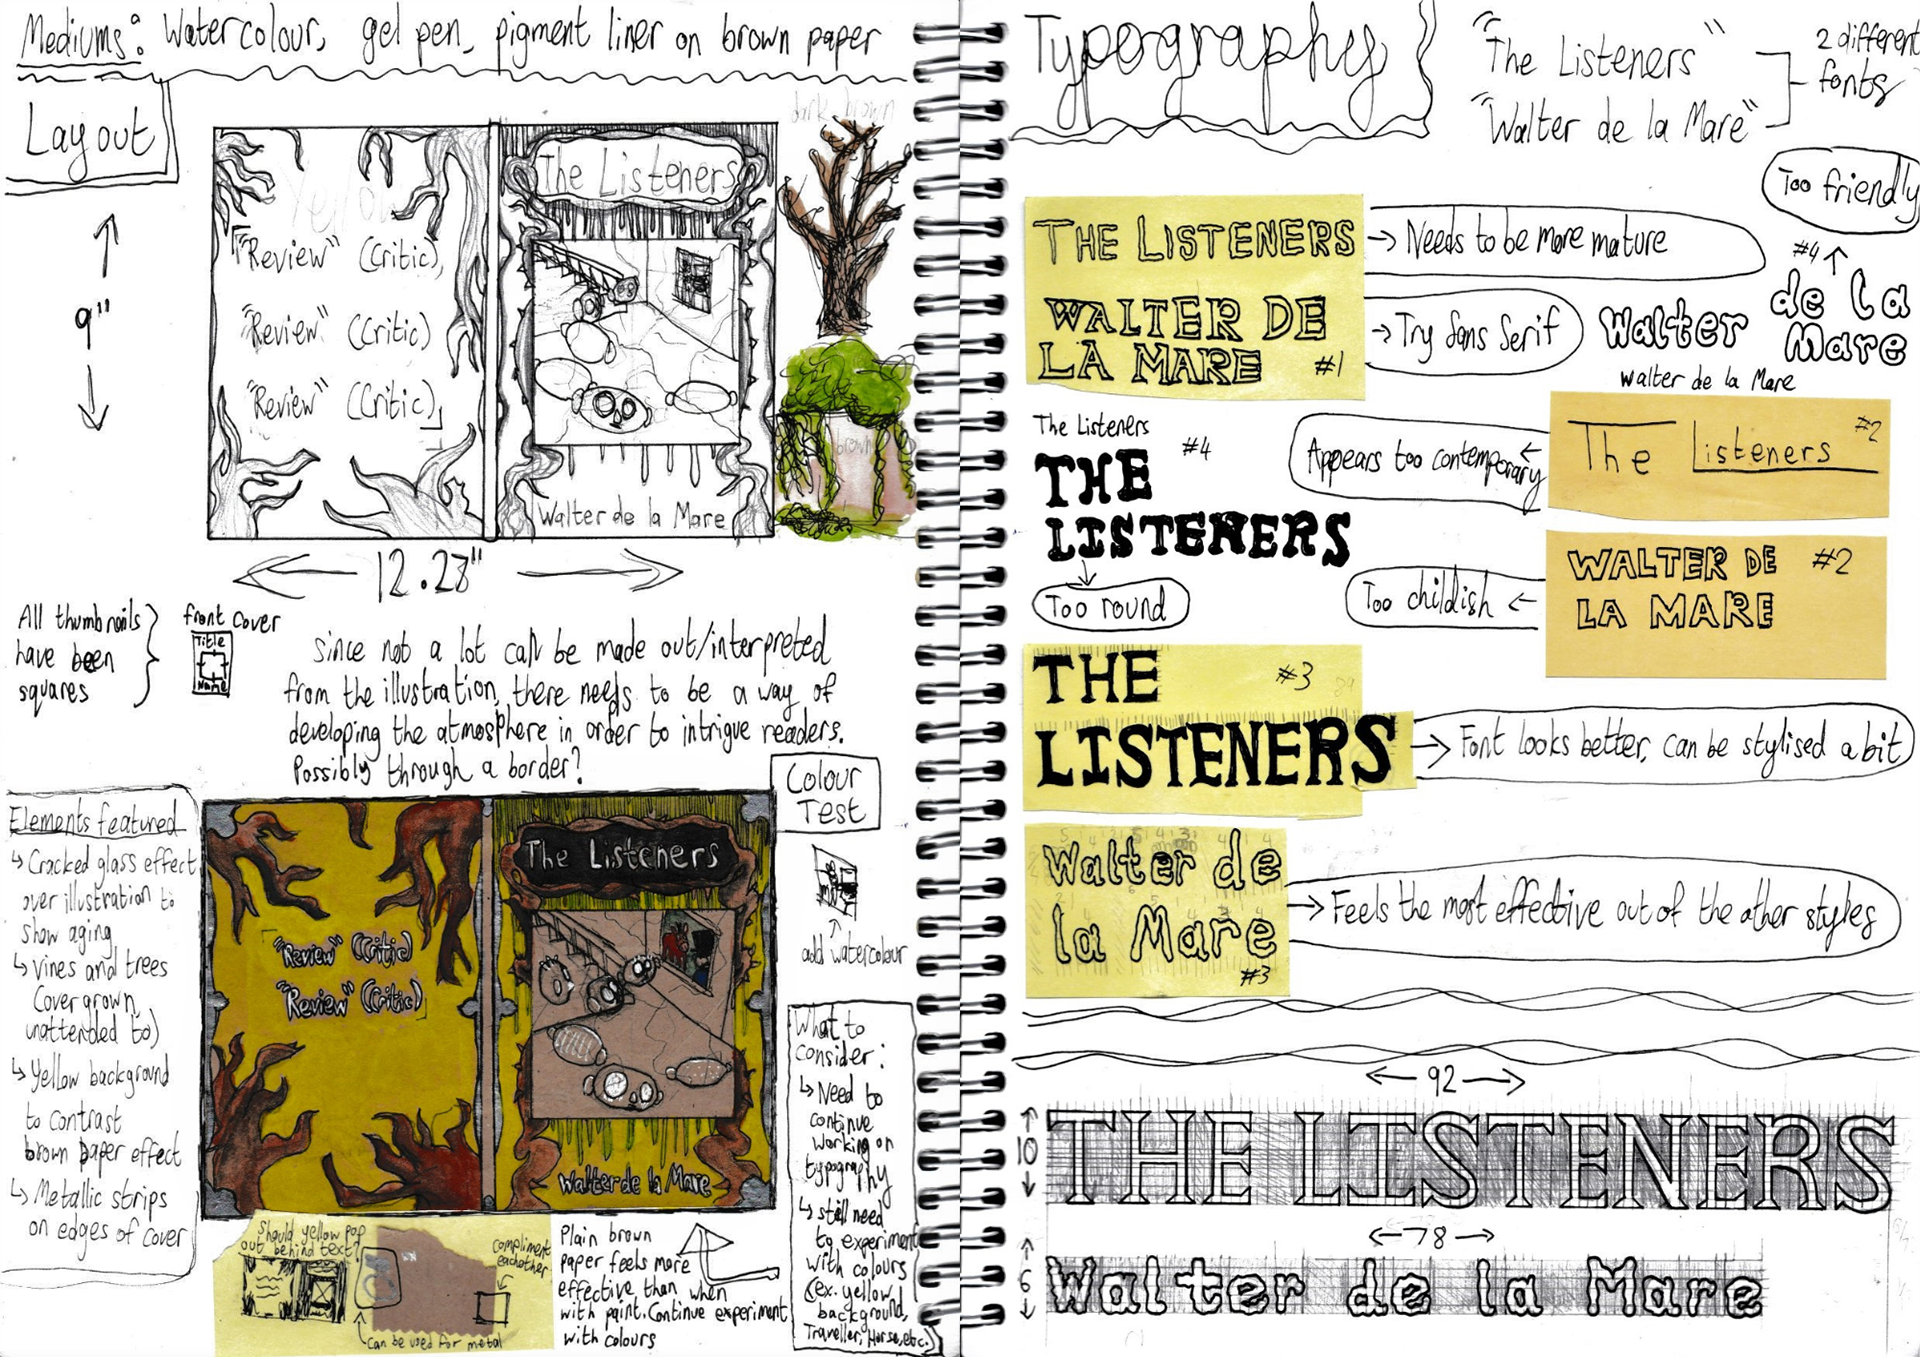 Mediums: Watercolour, gel pen, pigment liner on brown paper
Layout
dark brown
Yellow
The Listeners
"Review" (Critic),
"Review" (Critic)
"Review" (Critic)
brown
Walter de la Mare
9"
12.28"
All thumbnails
have been
squares
front cover
Title
Name
since not a lot can be made out/interpreted
from the illustration, there needs to be a way of
developing the atmosphere in order to intrigue readers.
Possibly through a border?
Colour
Test
Elements featured
↳ Cracked glass effect
over illustration to
show aging
↳ Vines and trees
(overgrown,
unattended to)
↳ Yellow background
to contrast
brown paper effect
↳ Metallic strips
on edges of cover
The Listeners
"Review" (Critic)
"Review" (Critic)
Walter de la Mare
add watercolour
What to
consider:
↳ Need to
continue
working on
typography
↳ still need
to experiment
with colours
(ex. yellow
background,
Traveller, Horse, etc.)
should yellow pop
out behind text?
compliment
eachother
can be used for metal
Plain brown
paper feels more
effective than when
with paint. Continue experiment
with colours
Typography
"The Listeners"
"Walter de la Mare"
2 different
fonts
Too friendly
THE LISTENERS
WALTER DE
LA MARE #1
→ Needs to be more mature
→ Try Sans Serif
#4
Walter de la
Mare
Walter de la Mare
The Listeners
#4
THE
LISTENERS
Too round
Appears too contemporary
The Listeners #2
Too childish
WALTER DE #2
LA MARE
THE #3
LISTENERS
→ Font looks better, can be stylised a bit
Walter de
la Mare
#3
→ Feels the most effective out of the other styles
92
10
THE LISTENERS
78
6
Walter de la Mare